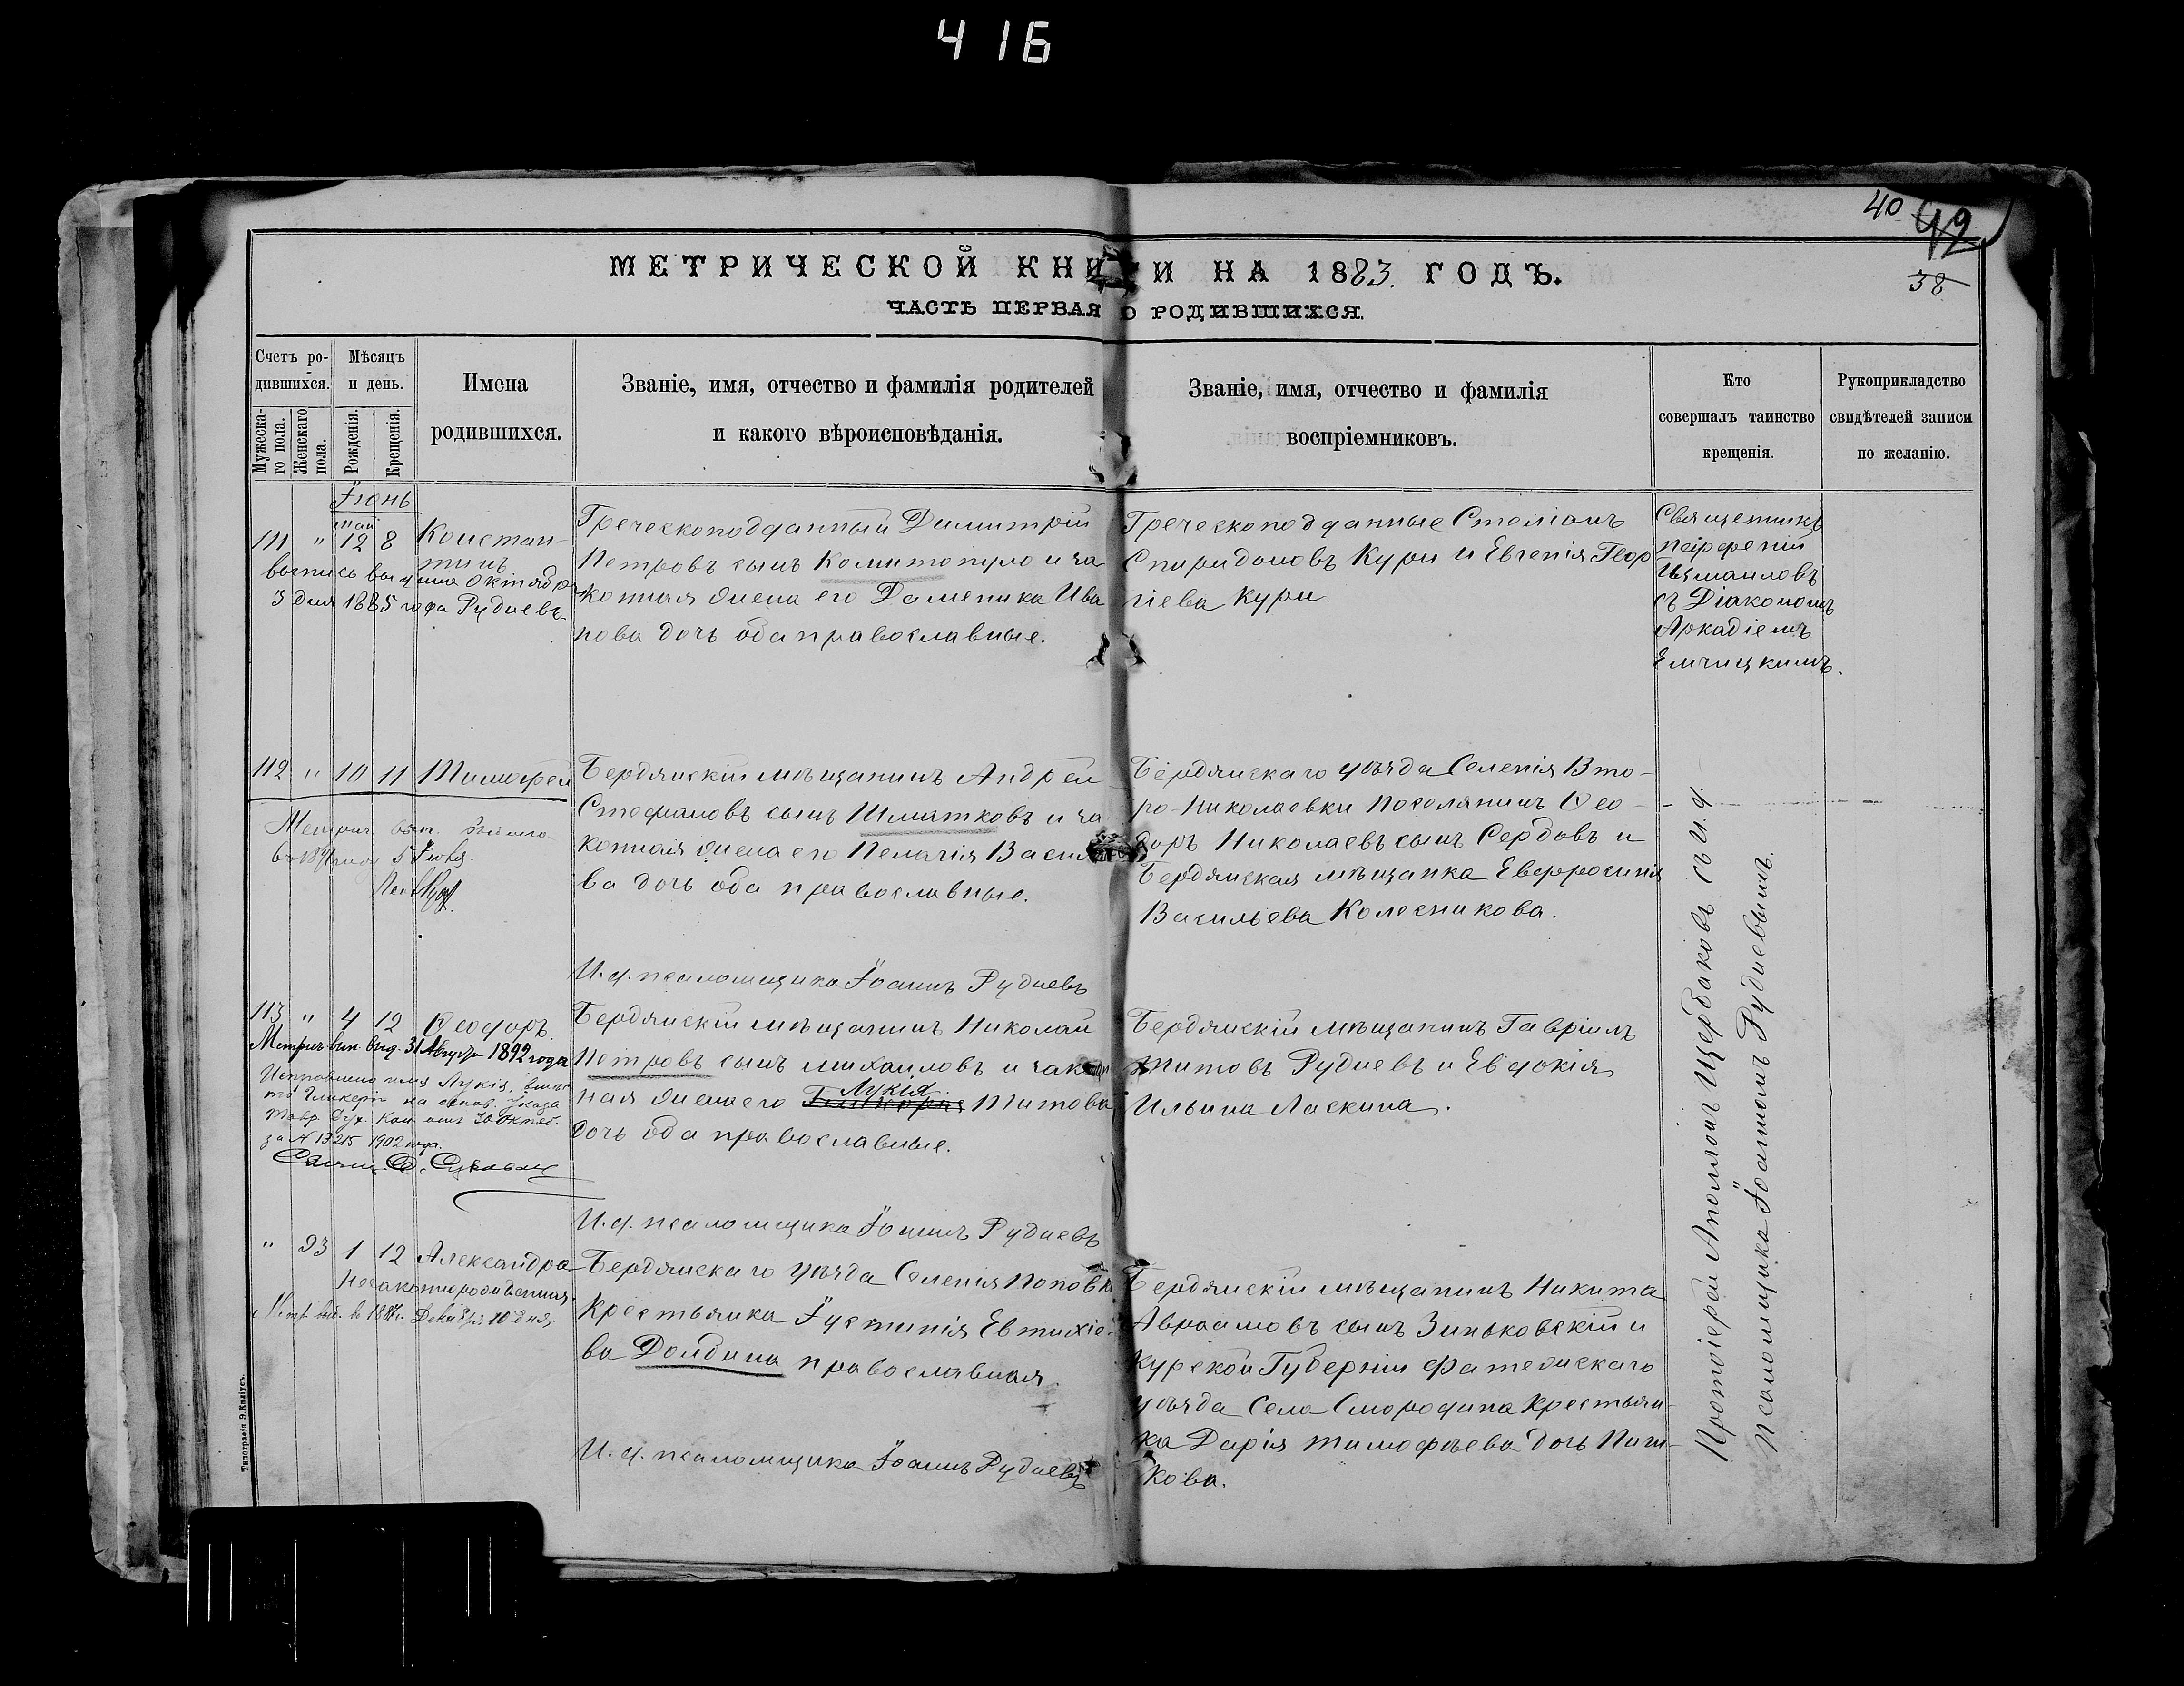 416
40 42
38
МЕТРИЧЕСКОЙ КНИГИ НА 1883. ГОДЪ.
ЧАСТЬ ПЕРВАЯ О РОДИВШИХСЯ.
Счетъ ро-
дившихся.
Мужеска-
го пола.
Женскаго
пола.
Мѣсяцъ
и день.
Рожденія.
Крещенія.
Имена
родившихся.
Званіе, имя, отчество и фамилія родителей
и какого вѣроисповѣданія.
Званіе, имя, отчество и фамилія
воспріемниковъ.
Кто
совершалъ таинство
крещенія.
Рукоприкладство
свидѣтелей записи
по желанію.
Іюнь
май
111 " 12 8 Констан-
тинъ
выпись выдана Октября
3 дня 1885 года Рудневъ.
Греческоподданный Димитрій
Петровъ сынъ Комитопуло и за
конная жена его Даменика Ива
нова дочь оба православные.
Греческоподданные Стеліанъ
Спиридоновъ Кури и Евгенія Геор
гіева Кури.
Священникъ
Парфеній
Измаиловъ
съ Діакономъ
Аркадіемъ
Емчицкимъ.
112 " 10 11 Тимофей
Метрич. вып.
въ 1891 году 5 Іюня.
Бердянскій мѣщанинъ Андрей
Стефановъ сынъ Шматковъ и за
конная жена его Пелагія Василье
ва дочь оба православные.
Бердянскаго уѣзда Селенія Вто-
ро-Николаевки поселянинъ Ѳео-
доръ Николаевъ сынъ Сердовъ и
Бердянская мѣщанка Евфросинія
Васильева Колесникова.
И.д. псаломщика Іоаннъ Рудневъ
113 " 4 12 Ѳеодоръ
Метрич. вып. выд. 31 Августа 1892 года
Исправлено имя Лукія, вмѣс
то Гликерія на основ. Указа
Тавр. Дух. Кон. отъ 30 Октяб.
за № 13215 1902 года.
Бердянскій мѣщанинъ Николай
Петровъ сынъ Михаиловъ и закон
Лукія
ная жена его Гликерія Титова
дочь оба православные.
Бердянскій мѣщанинъ Гавріилъ
Титовъ Рудневъ и Евдокія
Ильина Ласкина.
И.д. псаломщика Іоаннъ Рудневъ
" 93 1 12 Александра
Незаконнорожденная.
Метр. выд. въ 1887г. Декабря 10 дня.
Бердянскаго уѣзда Селенія Поповки
Крестьянка Іустинія Евтихіе-
ва Долбина православная.
Бердянскій мѣщанинъ Никита
Авраамовъ сынъ Зиньковскій и
Курской Губерніи Фатежскаго
уѣзда Села Смородина Крестьян-
ка Дарія Тимофѣева дочь Паш-
кова.
И.д. псаломщика Іоаннъ Рудневъ
Протоіерей Аполлонъ Щербаковъ съ И.д.
псаломщика Іоанномъ Рудневымъ.
Типографія Э.Килiусъ.